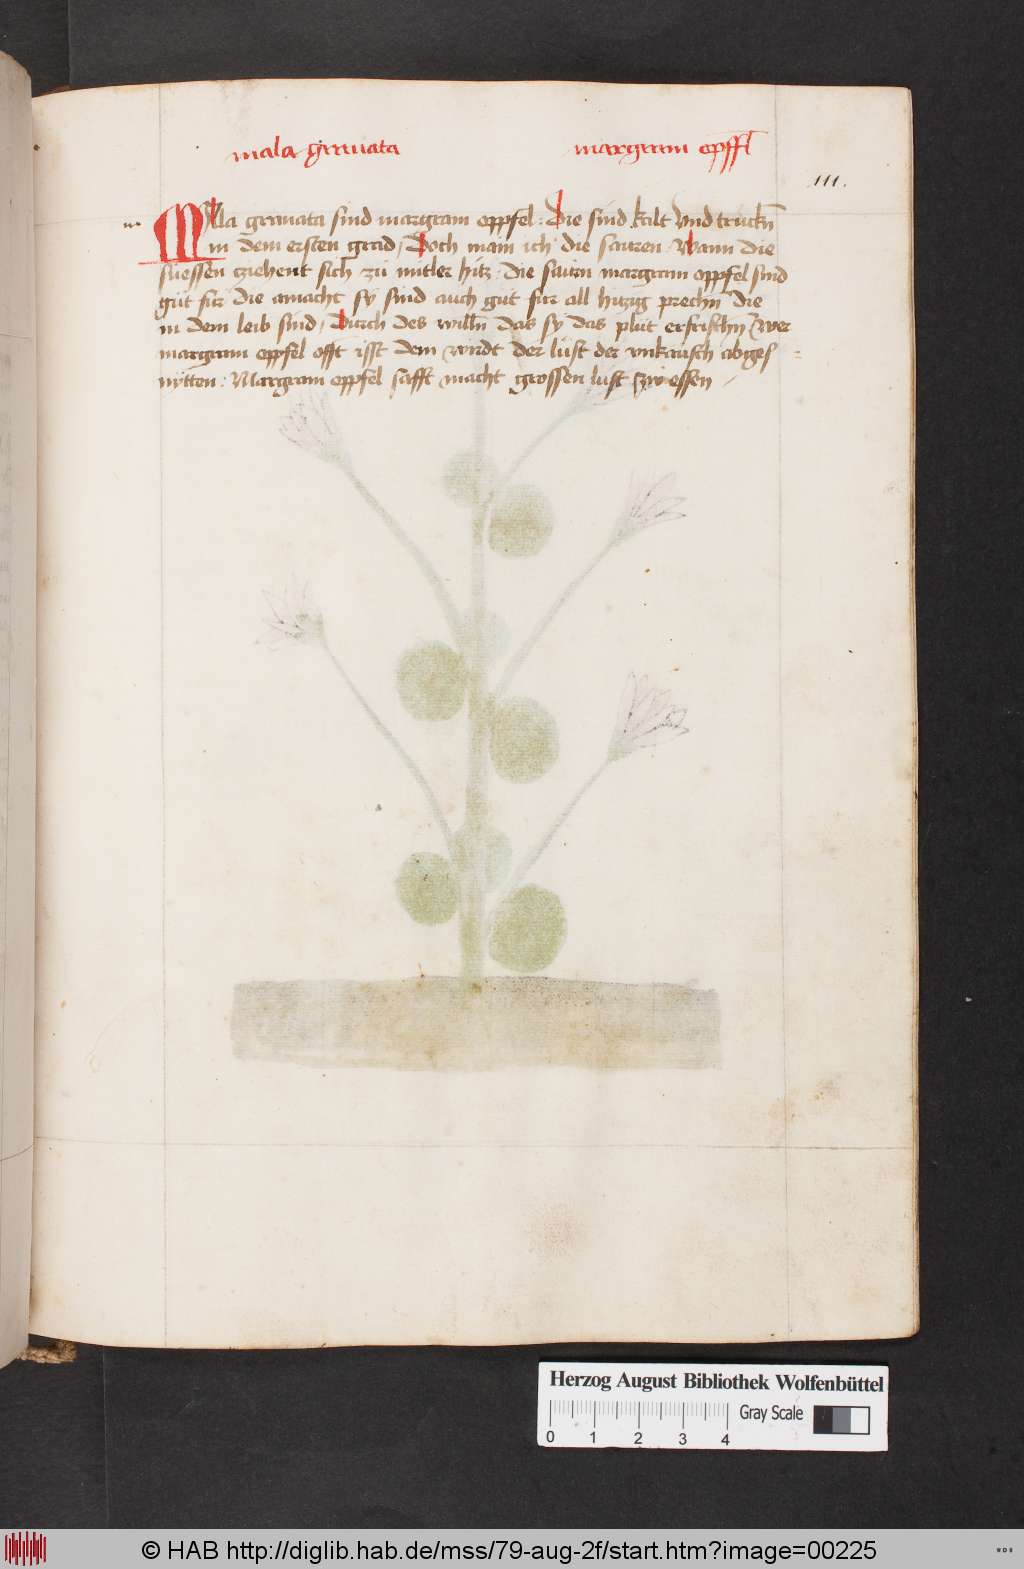 mala granata margram opffl
111.
Mala granata sind margram oppfel · Die sind kalt vnd truckn̄
in dem ersten grad / Doch main ich die sauren · Wann die
suessen cziehent sich zu mitler hitz · die saurn margram oppfel sind
gůt für die amacht sy sind auch gůt für all hitzig prechn̄ die
in dem leib sind / Durch des willn̄ das sy das plůt erfrischn̄ wer
margram oppfel offt isst dem wirdt der lust der vnkausch abges
nytten : Margram oppfel safft macht grossen lust zw essen /
Herzog August Bibliothek Wolfenbüttel
Gray Scale
0 1 2 3 4
© HAB http://diglib.hab.de/mss/79-aug-2f/start.htm?image=00225